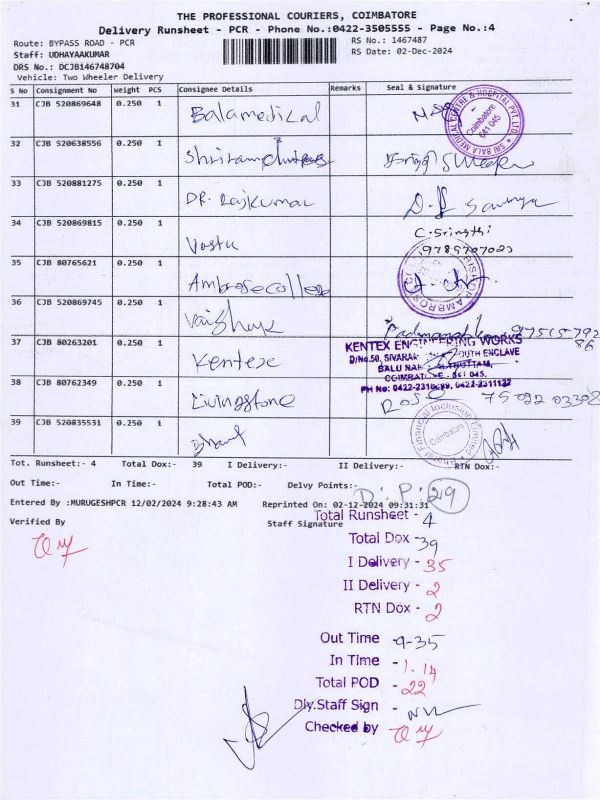 THE PROFESSIONAL COURIERS, COIMBATORE
Delivery Runsheet - PCR - Phone No.:0422-3505555 - Page No.:4
Route: BYPASS ROAD - PCR
RS No.: 1467487
Staff: UDHAYAAKUMAR
RS Date: 02-Dec-2024
DRS No.: DCJB146748704
Vehicle: Two Wheeler Delivery
S No Consignment No Weight PCS Consignee Details Remarks Seal & Signature
31 CJB 520869648 0.250 1 Balamedical
SRI BALA MEDICAL CENTRE & HOSPITAL PVT. LTD. Coimbatore 641 045
32 CJB 520638556 0.250 1
33 CJB 520881275 0.250 1 DR. Rajkumar
34 CJB 520869815 0.250 1 Vastu
35 CJB 80765621 0.250 1 Ambrose college
36 CJB 520869745 0.250 1
37 CJB 80263201 0.250 1 Kentex
KENTEX ENGINEERING WORKS
D/No.50, SIVARAM SOUTH ENCLAVE
38 CJB 80762349 0.250 1 Livingstone Rose 75022 03308
39 CJB 520835531 0.250 1
Financial Inclusion Limited Coimbatore
Tot. Runsheet:- 4 Total Dox:- 39 I Delivery:- II Delivery:- RTN Dox:-
Out Time:- In Time:- Total POD:- Delvy Points:-
D.P: 29
Entered By :MURUGESHPCR 12/02/2024 9:28:43 AM Reprinted On: 02-12-2024 09:31:31
Verified By Staff Signature
Total Runsheet - 4
Total Dox - 39
I Delivery - 35
II Delivery - 2
RTN Dox - 2
Out Time - 9-35
In Time - 1.14
Total POD - 22
Dly.Staff Sign -
Checked by